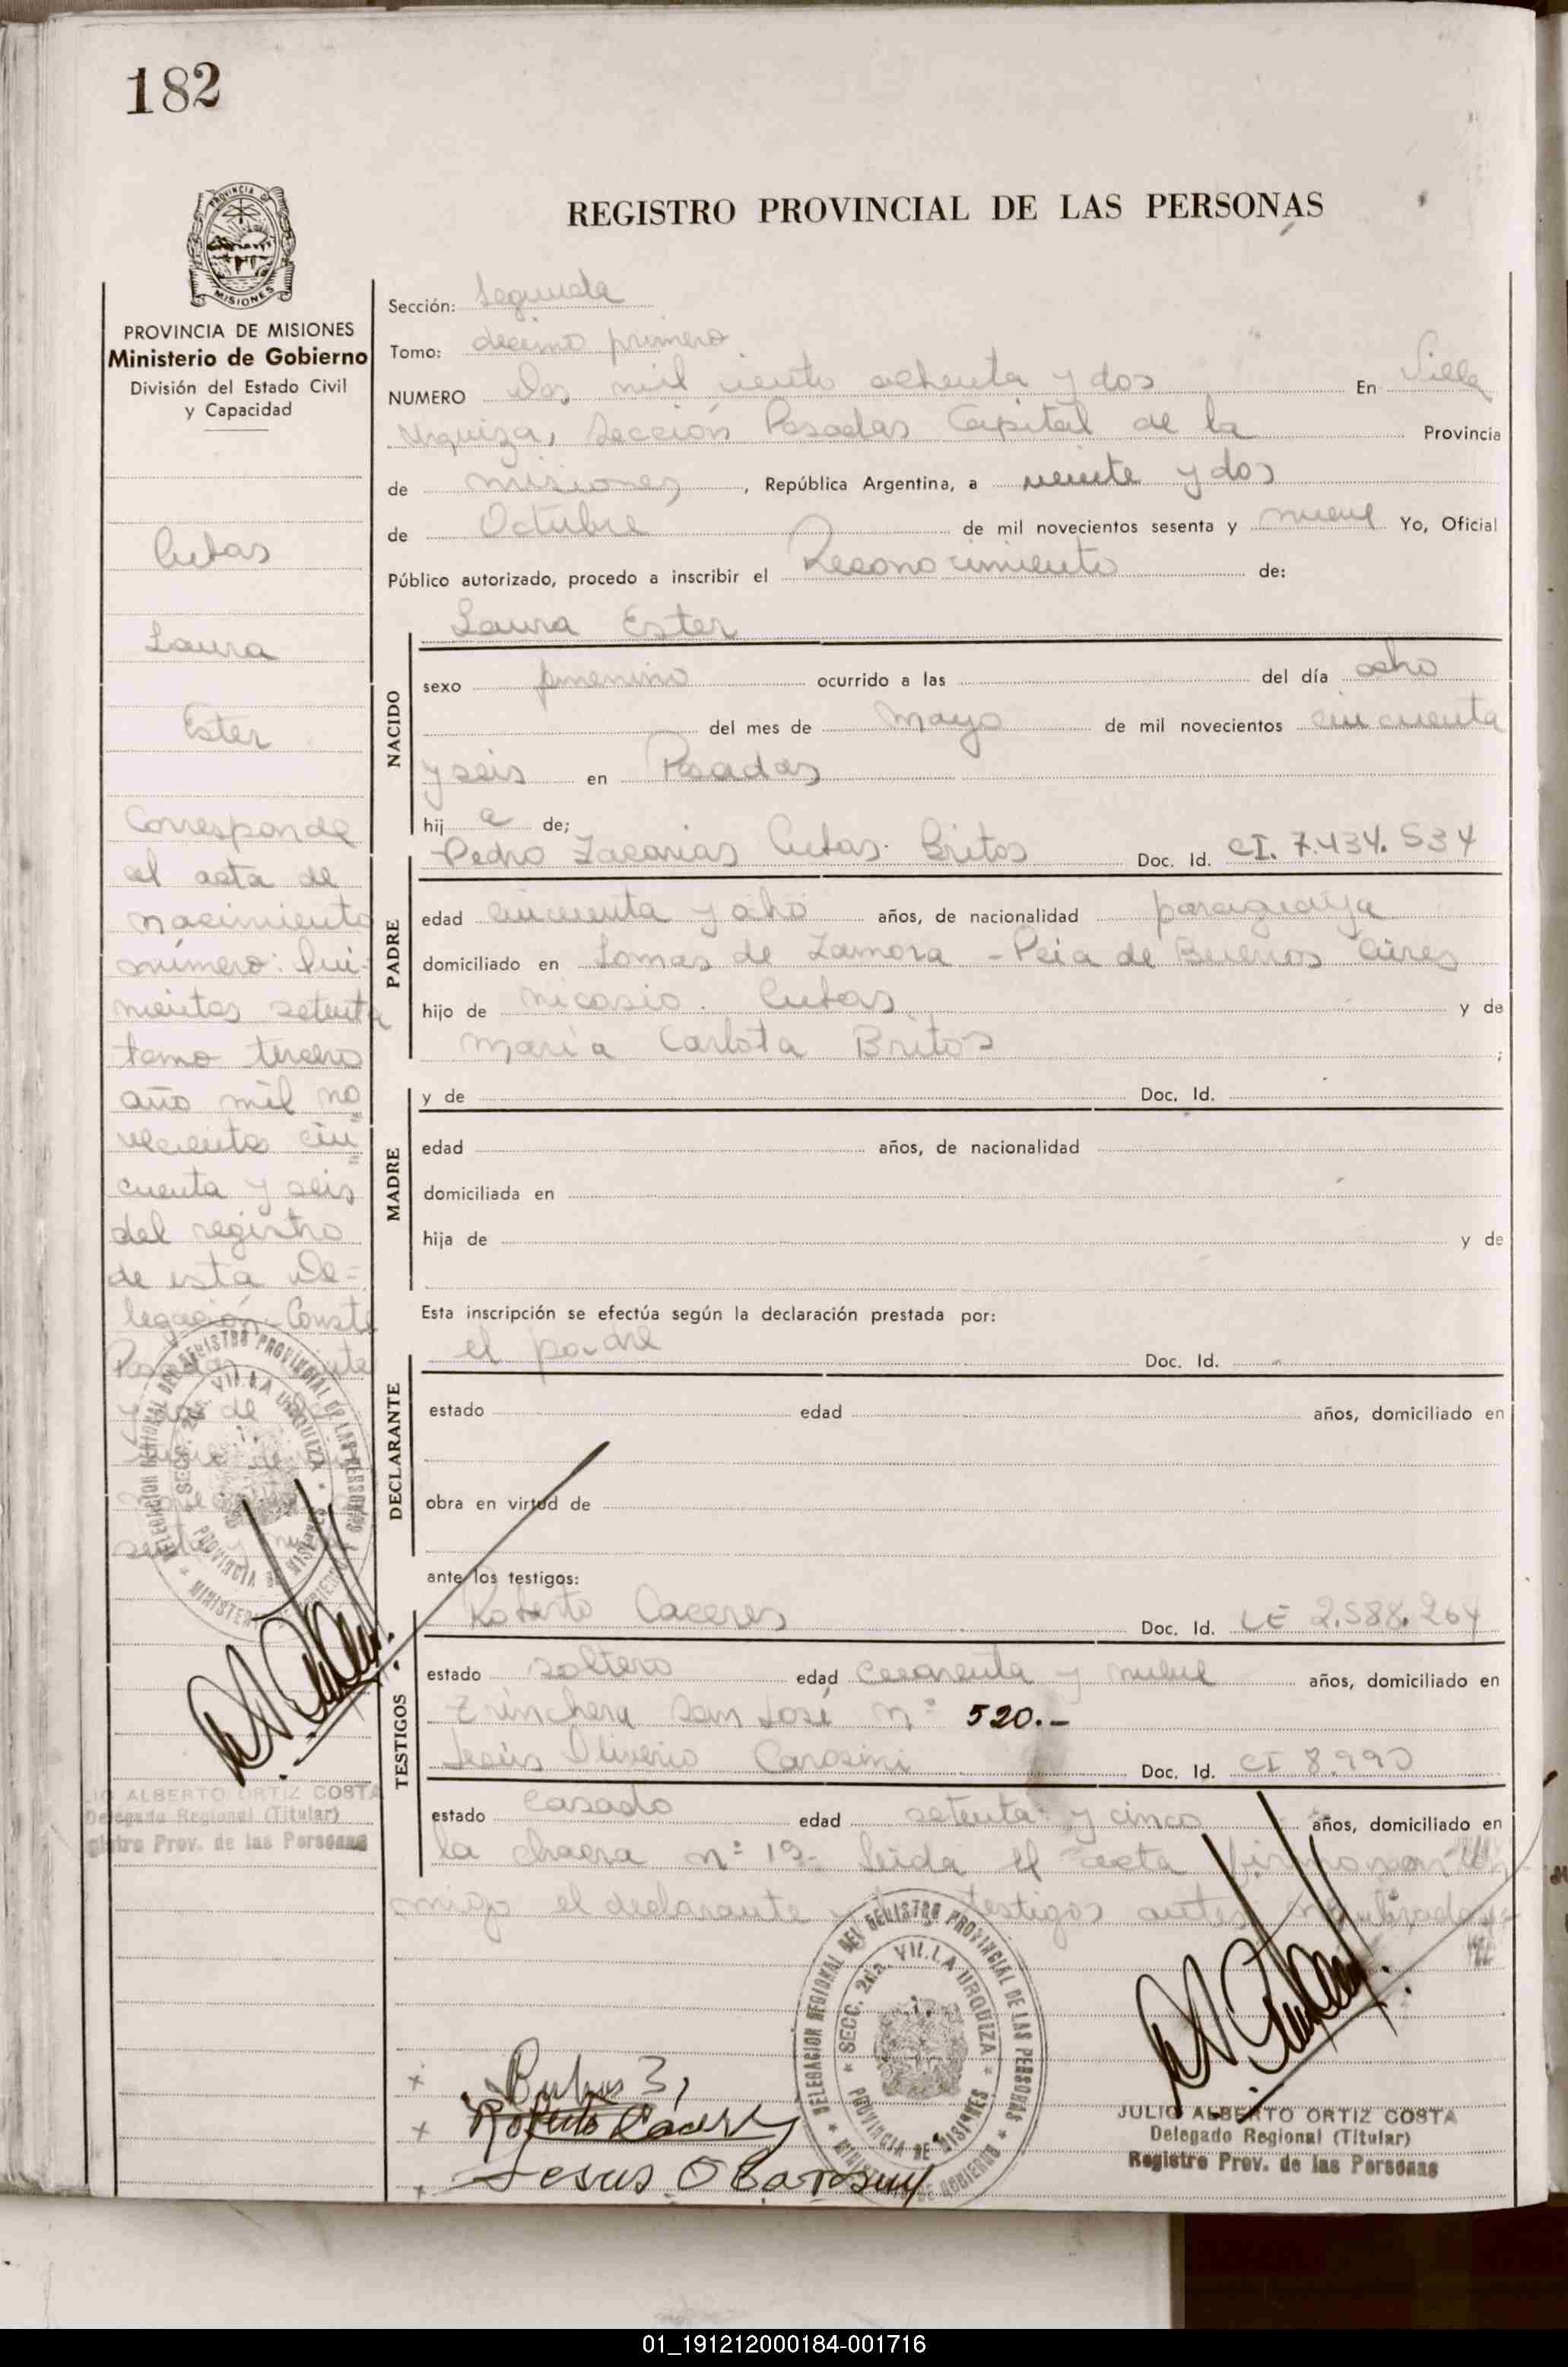 182
REGISTRO PROVINCIAL DE LAS PERSONAS
PROVINCIA
MISIONES
PROVINCIA DE MISIONES
Ministerio de Gobierno
División del Estado Civil
y Capacidad
Cubas
Laura
Ester
Corresponde
al acta de
nacimiento
número: Qui-
nientos setenta
tomo tercero
año mil no
vecientos cin
cuenta y seis
del registro
de esta De=
legación - Conste
Posadas
y dos de
DELEGACION REGIONAL DEL REGISTRO PROVINCIAL DE LAS PERSONAS
SECC. 2da. VILLA URQUIZA
PROVINCIA DE MISIONES
ALBERTO ORTIZ COSTA
Delegado Regional (Titular)
Registro Prov. de las Personas
Sección: Segunda
Tomo: decimo primero
NUMERO Dos mil ciento ochenta y dos En Villa
Urquiza, Sección Posadas Capital de la Provincia
de Misiones, República Argentina, a veinte y dos
de Octubre de mil novecientos sesenta y nueve Yo, Oficial
Público autorizado, procedo a inscribir el Reconocimiento de:
Laura Ester
NACIDO
sexo femenino ocurrido a las del día ocho
del mes de Mayo de mil novecientos cincuenta
y seis en Posadas
hij a de;
PADRE
Pedro Zacarias Cubas Britos Doc. Id. CI. 7.434.534
edad cincuenta y ocho años, de nacionalidad paraguaya
domiciliado en Lomas de Zamora - Pcia de Buenos Aires
hijo de Nicasio Cubas y de
María Carlota Britos ;
MADRE
y de Doc. Id.
edad años, de nacionalidad
domiciliada en
hija de y de
Esta inscripción se efectúa según la declaración prestada por:
DECLARANTE
el padre Doc. Id.
estado edad años, domiciliado en
obra en virtud de
ante los testigos:
TESTIGOS
Roberto Caceres Doc. Id. LE 2.588.264
estado soltero edad cuarenta y nueve años, domiciliado en
Trinchera San José nº 520.-
Jesús Oliverio Carosini Doc. Id. CI 8.990
estado casado edad setenta y cinco años, domiciliado en
la chacra nº 19- Leída el acta firmaron con
migo el declarante testigos antes nombrados
DELEGACION REGIONAL DEL REGISTRO PROVINCIAL DE LAS PERSONAS
SECC. 2da. VILLA URQUIZA
PROVINCIA DE MISIONES
Roberto Cáceres
Jesus O Carosini
JULIO ALBERTO ORTIZ COSTA
Delegado Regional (Titular)
Registro Prov. de las Personas
01_191212000184-001716